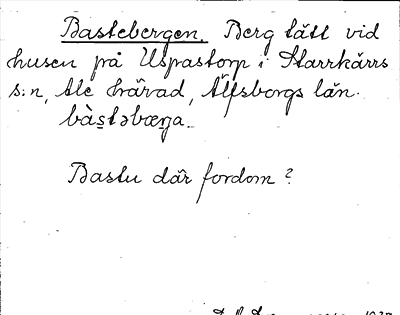 Bastebergen. Berg tätt vid
husen på Uspastorp i Starrkärrs
s:n, Ale härad, Älfsborgs län.
bàs̱təbæṉa.
Bastu där fordom?